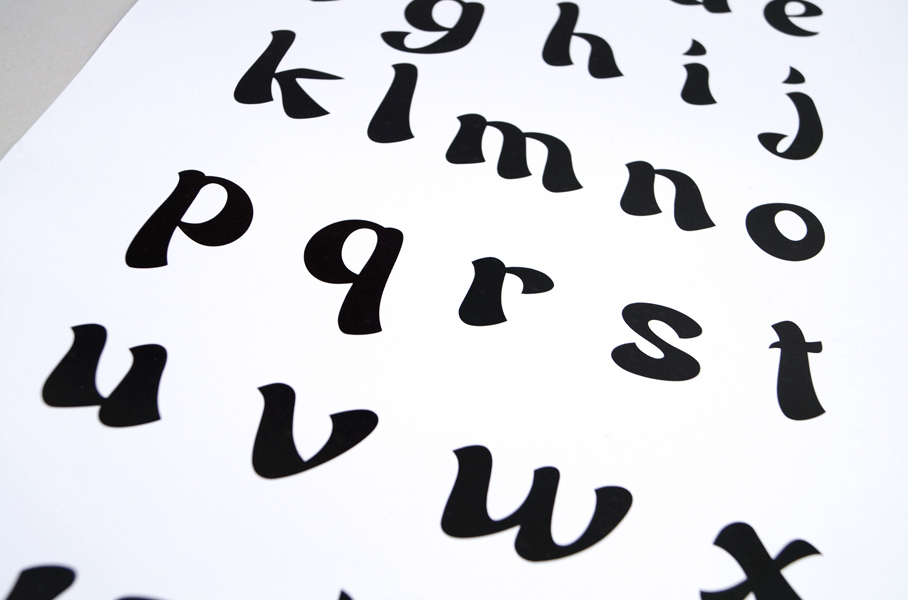 g h i j
k l m n o
p q r s t
u v w x